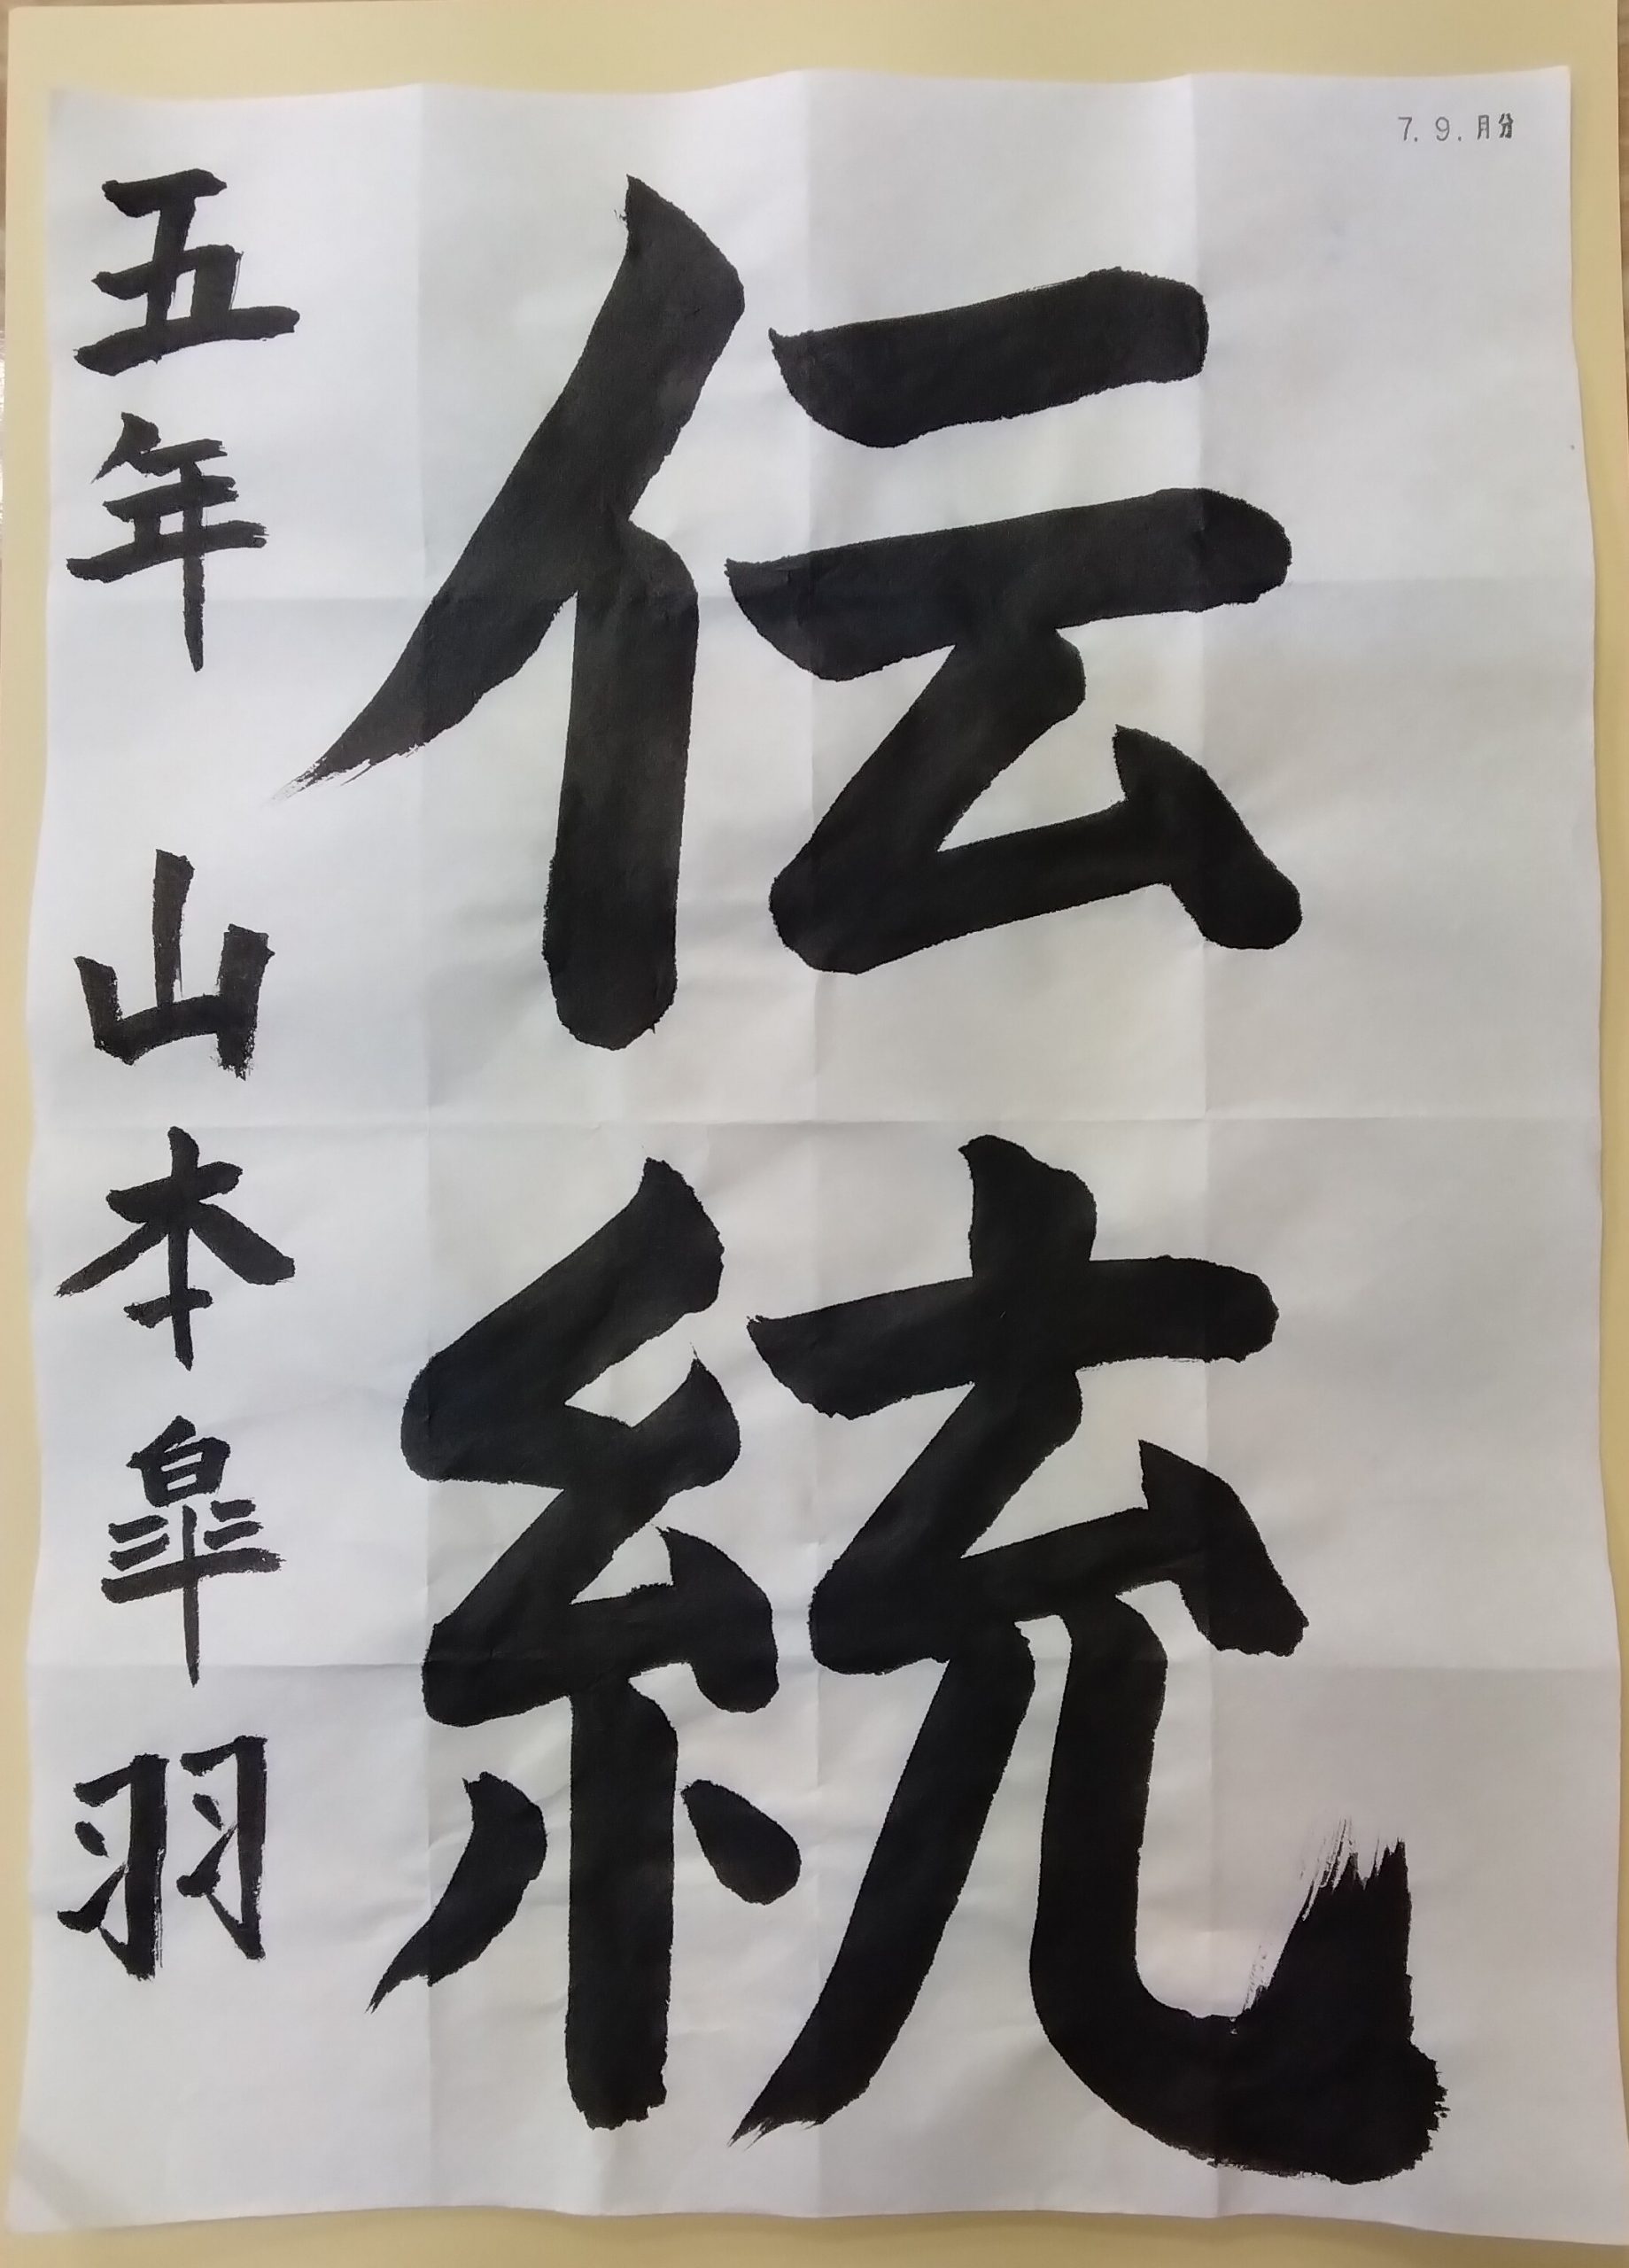 7. 9. 月分
伝統
五年 山本皐羽